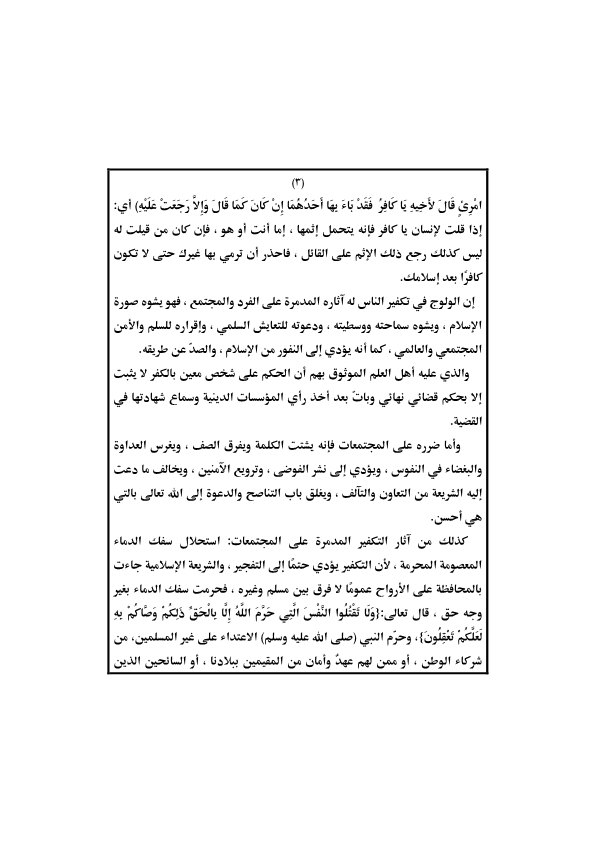 (٣)
امْرِئٍ قَالَ لأَخِيهِ يَا كَافِرُ فَقَدْ بَاءَ بِهَا أَحَدُهُمَا إِنْ كَانَ كَمَا قَالَ وَإِلاَّ رَجَعَتْ عَلَيْهِ) أي:
إذا قلت لإنسان يا كافر فإنه يتحمل إثمها ، إما أنت أو هو ، فإن كان من قيلت له
ليس كذلك رجع ذلك الإثم على القائل ، فاحذر أن ترمي بها غيرك حتى لا تكون
كافرًا بعد إسلامك.
إن الولوج في تكفير الناس له آثاره المدمرة على الفرد والمجتمع ، فهو يشوه صورة
الإسلام ، ويشوه سماحته ووسطيته ، ودعوته للتعايش السلمي ، وإقراره للسلم والأمن
المجتمعي والعالمي ، كما أنه يؤدي إلى النفور من الإسلام ، والصدّ عن طريقه.
والذي عليه أهل العلم الموثوق بهم أن الحكم على شخص معين بالكفر لا يثبت
إلا بحكم قضائي نهائي وباتّ بعد أخذ رأي المؤسسات الدينية وسماع شهادتها في
القضية.
وأما ضرره على المجتمعات فإنه يشتت الكلمة ويفرق الصف ، ويغرس العداوة
والبغضاء في النفوس ، ويؤدي إلى نشر الفوضى ، وترويع الآمنين ، ويخالف ما دعت
إليه الشريعة من التعاون والتآلف ، ويغلق باب التناصح والدعوة إلى الله تعالى بالتي
هي أحسن.
كذلك من آثار التكفير المدمرة على المجتمعات: استحلال سفك الدماء
المعصومة المحرمة ، لأن التكفير يؤدي حتمًا إلى التفجير ، والشريعة الإسلامية جاءت
بالمحافظة على الأرواح عمومًا لا فرق بين مسلم وغيره ، فحرمت سفك الدماء بغير
وجه حق ، قال تعالى:{وَلَا تَقْتُلُوا النَّفْسَ الَّتِي حَرَّمَ اللَّهُ إِلَّا بِالْحَقِّ ذَلِكُمْ وَصَّاكُمْ بِهِ
لَعَلَّكُمْ تَعْقِلُونَ}، وحرّم النبي (صلى الله عليه وسلم) الاعتداء على غير المسلمين، من
شركاء الوطن ، أو ممن لهم عهدٌ وأمان من المقيمين ببلادنا ، أو السائحين الذين